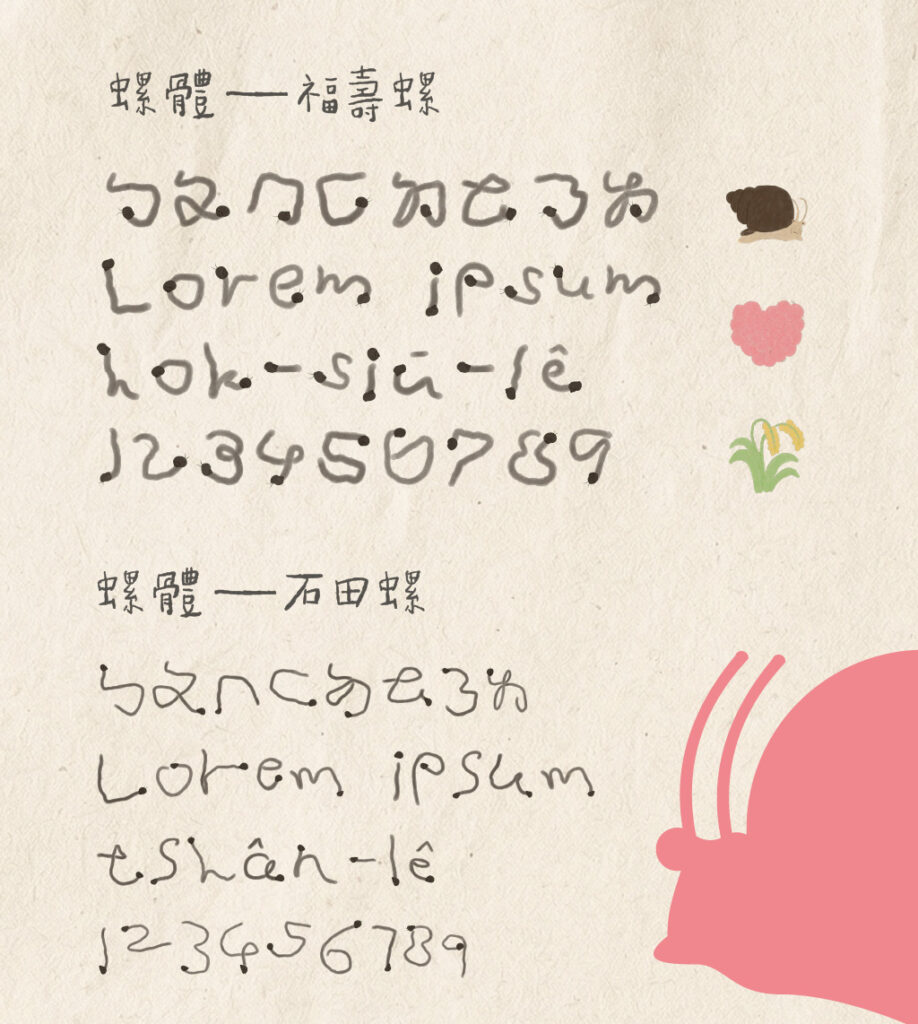 螺體——福壽螺
ㄅㄆㄇㄈㄉㄊㄋㄌ
Lorem ipsum
hok-siū-lê
123456789
螺體——石田螺
ㄅㄆㄇㄈㄉㄊㄋㄌ
Lorem ipsum
tshân-lê
123456789